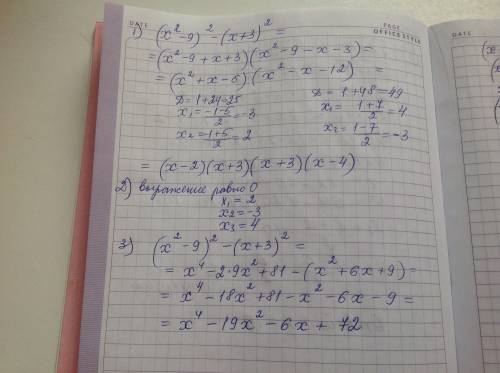 DATE PAGE
OFFICE STYLE
1) (x² - 9)² - (x+3)² =
= (x² - 9 + x + 3)(x² - 9 - x - 3) =
= (x² + x - 6)(x² - x - 12) =
D = 1+24=25 D = 1+48=49
x₁ = (-1-5)/2 = -3 x₁ = (1+7)/2 = 4
x₂ = (-1+5)/2 = 2 x₂ = (1-7)/2 = -3
= (x-2)(x+3)(x+3)(x-4)
2) выражение равно 0
x₁ = 2
x₂ = -3
x₃ = 4
3) (x² - 9)² - (x+3)² =
= x⁴ - 2·9x² + 81 - (x² + 6x + 9) =
= x⁴ - 18x² + 81 - x² - 6x - 9 =
= x⁴ - 19x² - 6x + 72